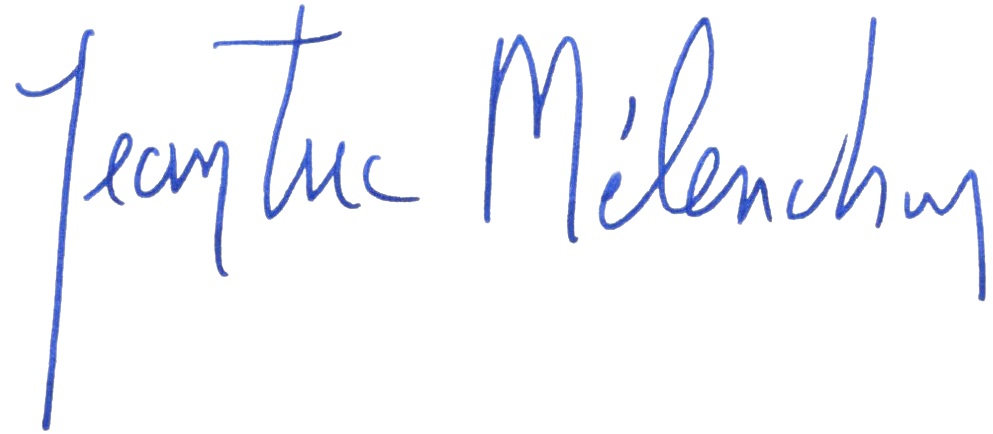 Jean Luc Mélenchon